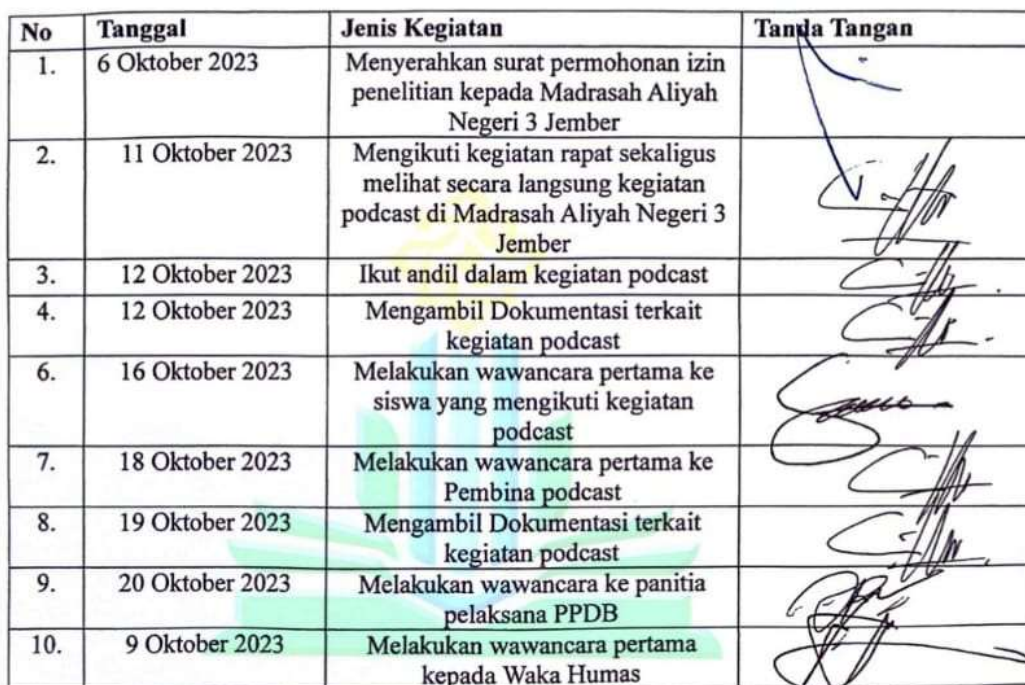 No Tanggal Jenis Kegiatan Tanda Tangan
1. 6 Oktober 2023 Menyerahkan surat permohonan izin
penelitian kepada Madrasah Aliyah
Negeri 3 Jember
2. 11 Oktober 2023 Mengikuti kegiatan rapat sekaligus
melihat secara langsung kegiatan
podcast di Madrasah Aliyah Negeri 3
Jember
3. 12 Oktober 2023 Ikut andil dalam kegiatan podcast
4. 12 Oktober 2023 Mengambil Dokumentasi terkait
kegiatan podcast
6. 16 Oktober 2023 Melakukan wawancara pertama ke
siswa yang mengikuti kegiatan
podcast
7. 18 Oktober 2023 Melakukan wawancara pertama ke
Pembina podcast
8. 19 Oktober 2023 Mengambil Dokumentasi terkait
kegiatan podcast
9. 20 Oktober 2023 Melakukan wawancara ke panitia
pelaksana PPDB
10. 9 Oktober 2023 Melakukan wawancara pertama
kepada Waka Humas